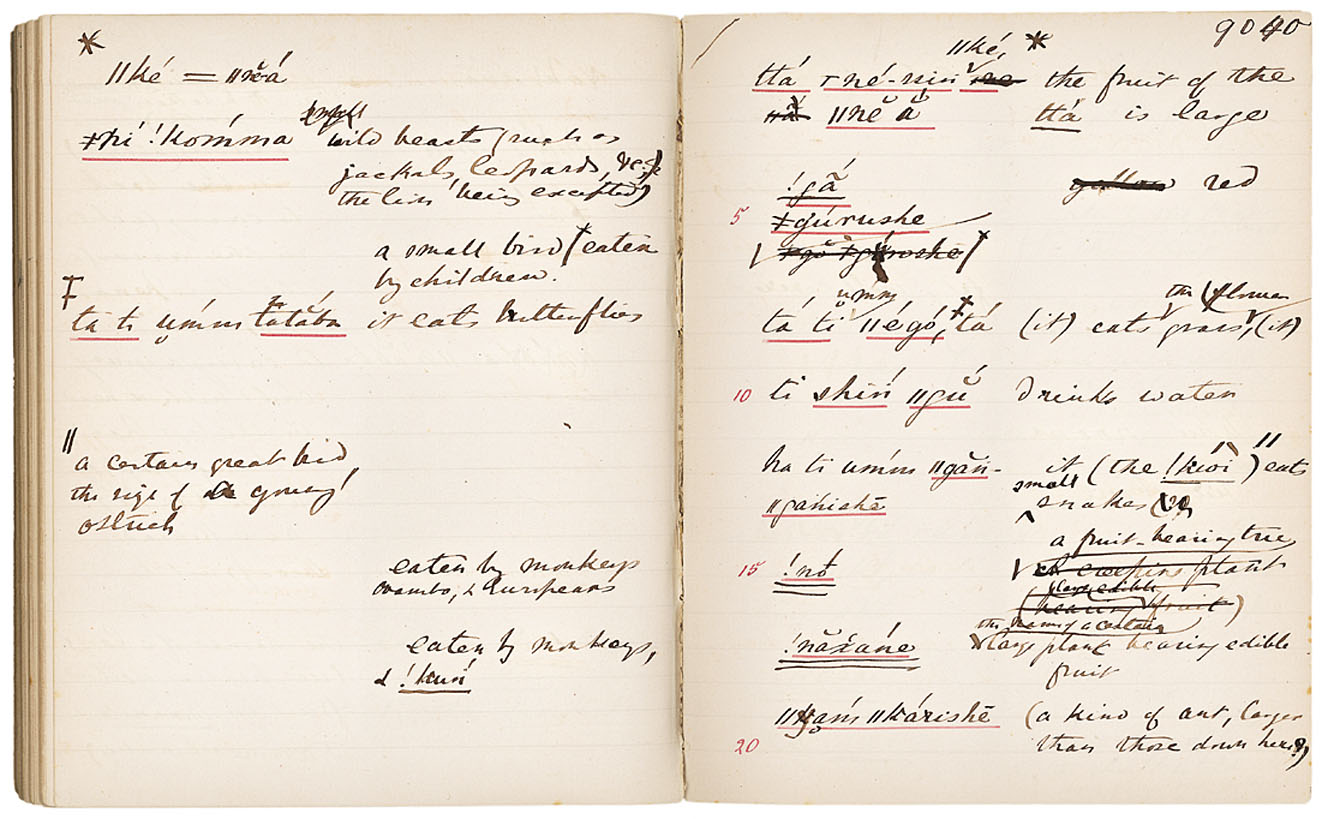 *
ǁké = ǁnĕá
small
ǂní !kómma wild beasts (such as
jackals, leopards, &c.,
the lion being excepted)
a small bird (eaten
by children.
tá ti úmm tatába it eats butterflies
ǁ
a certain great bird,
the size of a young
ostrich
eaten by monkeys
Ovambo, & Europeans
eaten by monkeys,
& !kuń
9040
ǁké, *
ttá né-nin ne the fruit of the
ǁnĕ ắ ttá is large
!gắ yellow red
5 ǂgúrushe
úmm the flower
tá ti ǁégó, tá (it) eats grass, (it)
10 ti shiń ǁgŭ́ drinks water
ha ti úmm ǁgăń- it (the !kúi) eats
small
ǁgáńishē snakes
a fruit-bearing tree
15 !nó creeping plant
large edible
(bearing fruit)
the name of a certain
!năxáne large plant bearing edible
fruit
ǁgam ǁkárishē (a kind of ant, larger
20 than those down here?)